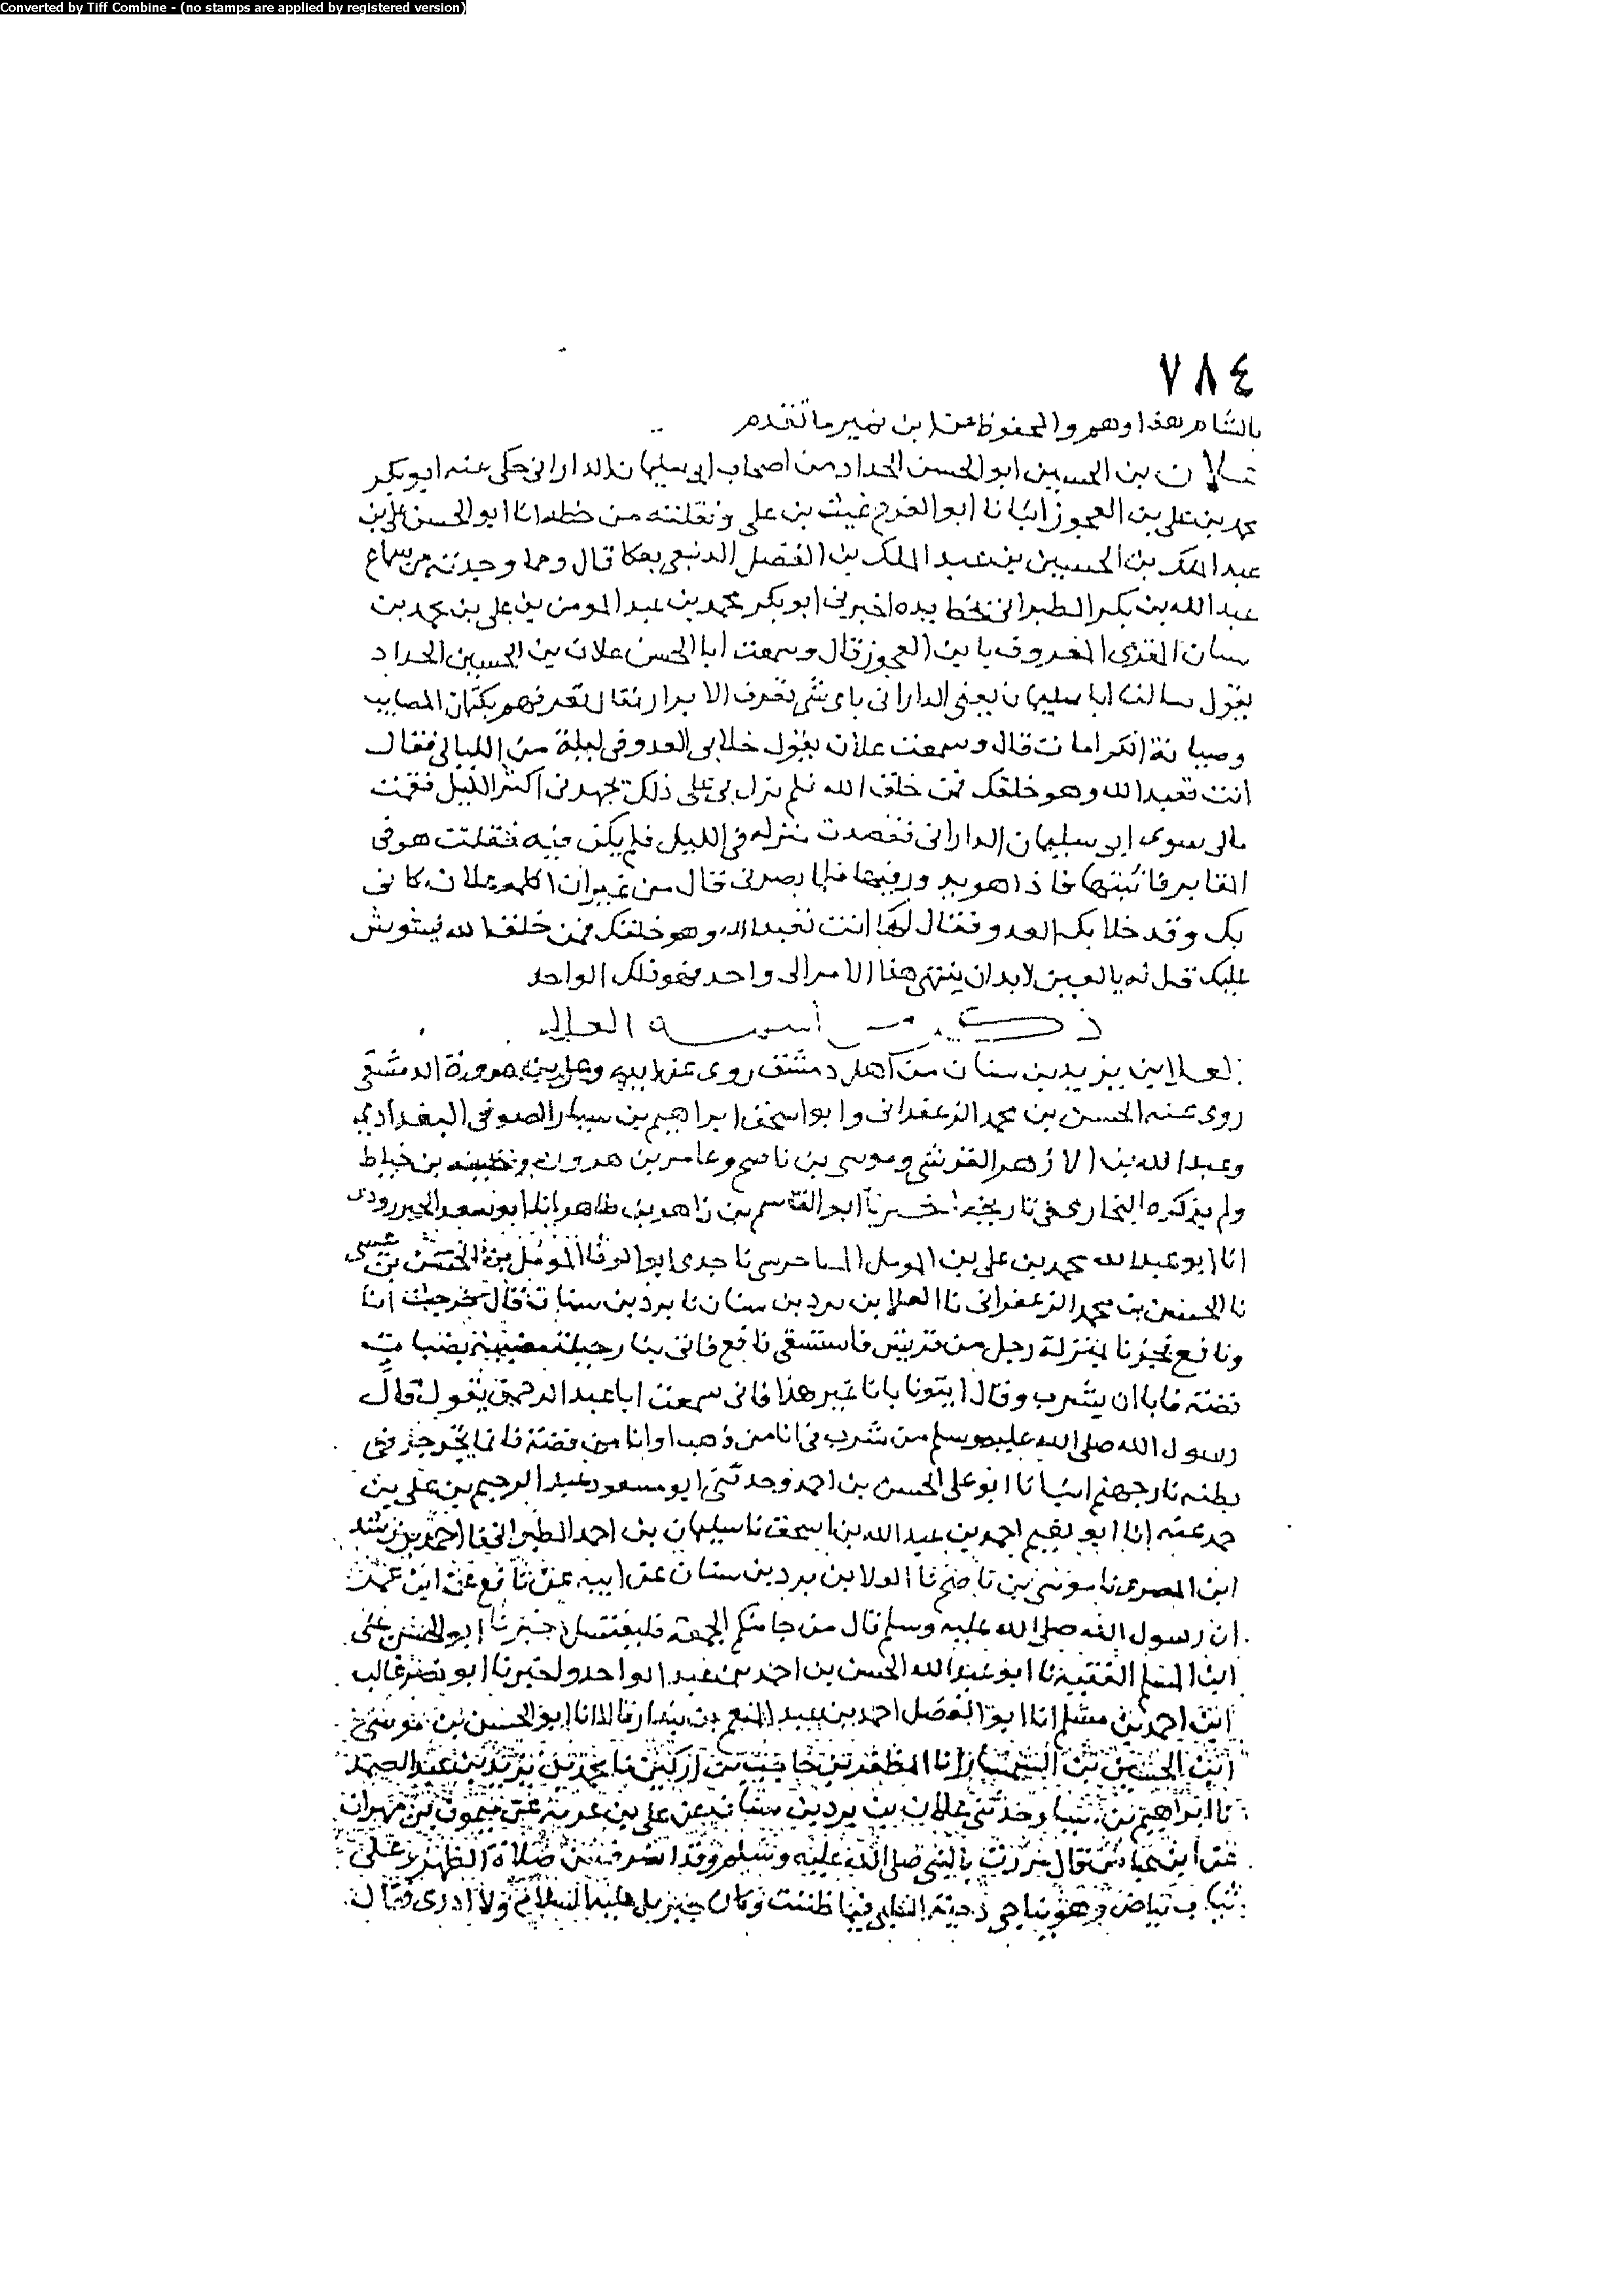 Converted by Tiff Combine - (no stamps are applied by registered version)
٧٨٤
بالشام هذا وهم والمحفوظ عن ابن نمير ما تقدم
علان بن الحسين ابو الحسن الحداد من اصحاب ابي سليمان الداراني حكى عنه ابو بكر
محمد بن علي بن العجوز انبانا ابو الفرج غيث بن علي ونقلته من خطه انا ابو الحسن علي بن
عبد الملك بن الحسين بن عبد الملك بن الفضل بعكا قال ومما وجدته من سماع
عبد الله بن بكر الطبراني بخط يده اخبرني ابو بكر محمد بن عبد المومن بن علي بن محمد بن
المعروف بابن العجوز قال وسمعت ابا الحسن علان بن الحسين الحداد
يقول سالت ابا سليمان يعني الداراني باي شي تعرف الابرار فقال تعرفهم بكتمان المصايب
وصيانة الكرامات قال وسمعت علان يقول خلا بي العدو في ليلة من الليالي فقال
انت تعبد الله وهو خلقك فمن خلق الله فلم يزل بي على ذلك يجهدني اكثر الليل فقمت
مالي سوى ابي سليمان الداراني فقصدت منزله في الليل فلم يكن فيه فقلت هو في
المقابر فاتيتها فاذا هو يدور فيها فلما بصرني قال من غير ان اكلمه علان كاني
بك وقد خلا بك العدو فقال لك انت تعبد الله وهو خلقك فمن خلق الله فيشوش
عليك قل له يا لعين لابد ان ينتهي هذا الامر الى واحد فهو ذلك الواحد
ذكر من اسمه العلا
العلا بن يزيد بن سنان من اهل دمشق روى عن ابيه وعلي بن الدمشقي
روى عنه الحسن بن محمد الزعفراني وابو اسحق ابراهيم بن سيار الصوفي البغدادي
وعبد الله بن الازهر القرشي وموسى بن ناصح وعامر بن هرون وخليفه بن خياط
ولم يذكره البخاري في تاريخه اخبرنا ابو القاسم بن زاهر بن طاهر انا ابو سعد الجنزرودي
انا ابو عبد الله محمد بن علي بن المومل الماسرجسي نا جدي ابو الوفا المومل بن الحسن بن عيسى
نا الحسن بن محمد الزعفراني نا العلا بن برد بن سنان نا برد بن سنان قال خرجت انا
ونافع فمررنا بمنزلة رجل من قريش فاستسقى نافع فاتى بنا بضبات
فضة فابا ان يشرب وقال ايتونا بانا غير هذا فاني سمعت ابا عبد الرحمن يقول قال
رسول الله صلى الله عليه وسلم من شرب في انا من ذهب او انا من فضة فانما يجرجر في
بطنه نار جهنم انبانا ابو علي الحسن بن احمد وحدثني ابو مسعود عبد الرحيم بن علي بن
حمد عنه انا ابو نعيم احمد بن عبد الله بن اسحق نا سليمان بن احمد الطبراني نا احمد بن رشد
ابن المصري نا موسى بن ناصح نا العلا بن برد بن سنان عن ابيه عن نافع عن ابن عمر
ان رسول الله صلى الله عليه وسلم قال من جا منكم الجمعة فليغتسل اخبرنا ابو الحسن علي
ابن المسلم الفقيه نا ابو عبد الله الحسن بن احمد بن عبد الواحد واخبرنا ابو نصر غالب
ابن احمد بن مسلم انا ابو الفضل احمد بن عبد المنعم بن بندار قالا انا ابو الحسن بن موسى
ابن الحسين بن السمسار انا المظفر بن حاجب بن اركين نا محمد بن يزيد بن عبد الصمد
نا ابراهيم بن وحدثني علان بن يزيد بن سنان عن علي بن عن ميمون بن مهران
عن ابن عباس قال مررت بالنبي صلى الله عليه وسلم وقد انصرف من صلاة الظهر وعلي
ثياب بياض وهو يناجي دحية الكلبي فيما ظننت وكان جبريل عليه السلام ولا ادري فقال